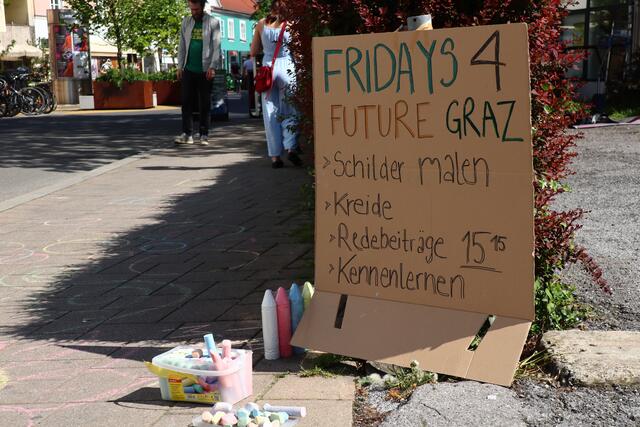 FRIDAYS 4
FUTURE GRAZ
> Schilder malen
> Kreide
> Redebeiträge 15¹⁵
> Kennenlernen